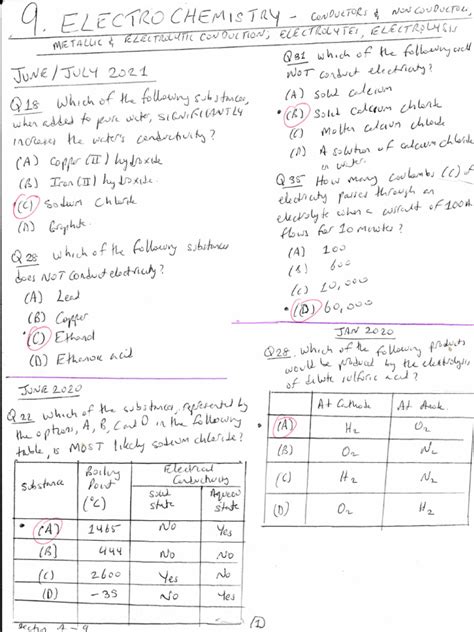 9. ELECTROCHEMISTRY - CONDUCTORS & NONCONDUCTORS,
METALLIC & ELECTROLYTIC CONDUCTION, ELECTROLYTES, ELECTROLYSIS
JUNE/JULY 2021
Q18 Which of the following substances,
when added to pure water, SIGNIFICANTLY
increases the water's conductivity?
(A) Copper (II) hydroxide
(B) Iron (II) hydroxide.
(C) Sodium Chloride
(D) Graphite.
Q28 Which of the following substances
does NOT conduct electricity?
(A) Lead
(B) Copper
(C) Ethanol
(D) Ethanoic acid
JUNE 2020
Q22 Which of the substances, represented by
the options, A, B, C and D in the following
table, is MOST likely sodium chloride?
Substance
Boiling Point (°C)
Electrical Conductivity
Solid state
Aqueous state
(A) 1465 No Yes
(B) 444 No No
(C) 2600 Yes No
(D) -35 No Yes
Section A - 9
(1)
Q31 Which of the following would
NOT conduct electricity?
(A) Solid calcium
(B) Solid calcium chloride
(C) Molten calcium chloride
(D) A solution of calcium chloride
in water.
Q35 How many coulombs (C) of
electricity passes through an
electrolyte when a current of 100A
flows for 10 minutes?
(A) 100
(B) 600
(C) 10,000
(D) 60,000
JAN 2020
Q28. Which of the following products
would be produced by the electrolysis
of dilute sulfuric acid?
At Cathode At Anode
(A) H2 O2
(B) O2 N2
(C) H2 N2
(D) O2 H2